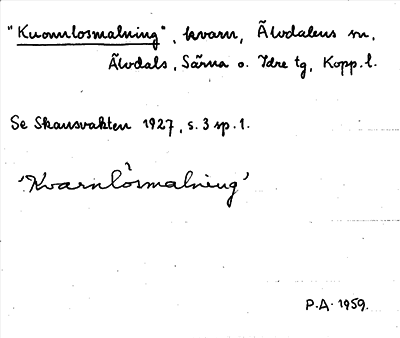 "Kuonnlosmalning", kvarn, Älvdalens sn,
Älvdals, Särna o. Idre tg, Kopp. l.
Se Skansvakten 1927, s. 3 sp. 1.
'Kvarnlösmalning'
P.A. 1959.